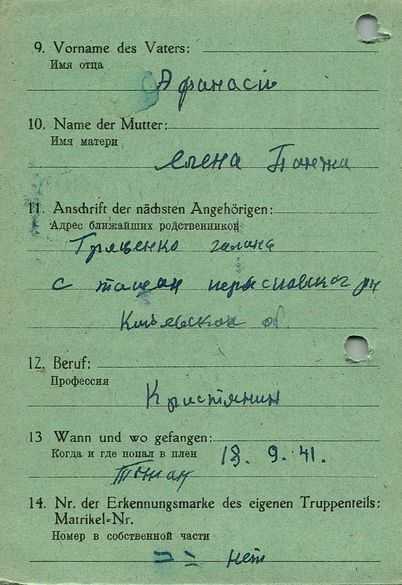 9. Vorname des Vaters:
Имя отца
Афанасій
10. Name der Mutter:
Имя матери
Елена
11. Anschrift der nächsten Angehörigen:
Адрес ближайших родственников
Гриценко галина
с ташан
Киъевской об.
12. Beruf:
Профессия
Кристянин
13 Wann und wo gefangen:
Когда и где попал в плен 18. 9. 41.
14. Nr. der Erkennungsmarke des eigenen Truppenteils:
Matrikel-Nr.
Номер в собственной части
нет